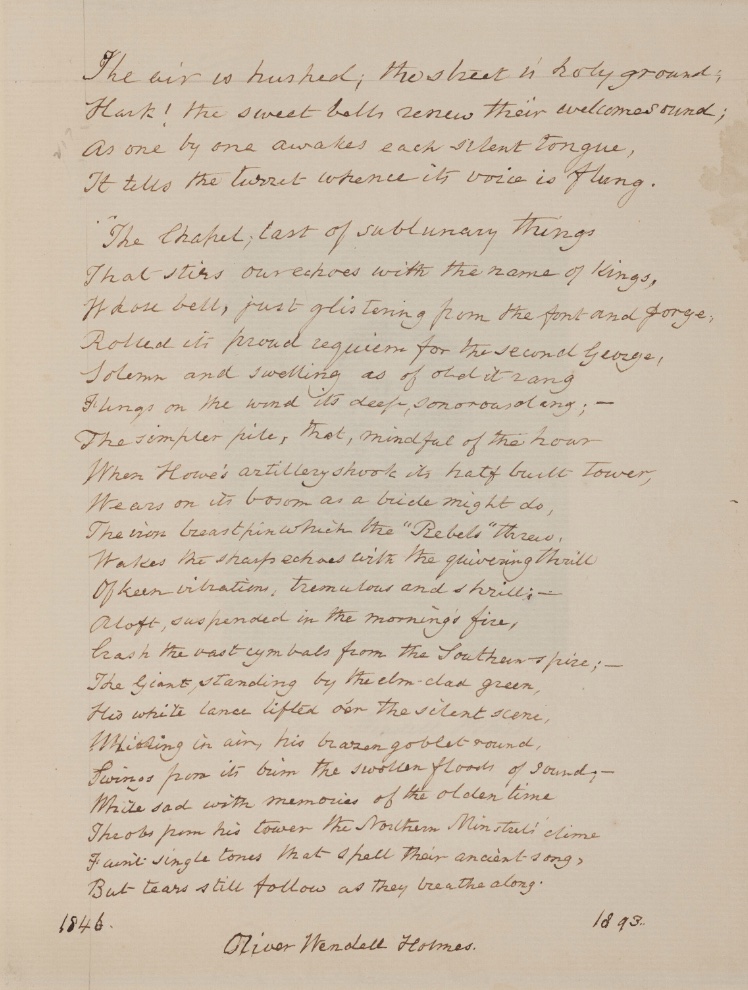 The air is hushed; the street is holy ground;
Hark! the sweet bells renew their welcome sound;
As one by one awakes each silent tongue,
It tells the turret whence its voice is flung.
"The Chapel, last of sublunary things
That stirs our echoes with the name of Kings,
Whose bell, just glistening from the font and forge,
Rolled its proud requiem for the second George,
Solemn and swelling as of old it rang
Flings on the wind its deep, sonorous clang; —
The simpler pile, that, mindful of the hour
When Howe's artillery shook its half built tower,
Wears on its bosom as a bride might do,
The iron breastpin which the "Rebels" threw,
Wakes the sharp echoes with the quivering thrill
Of keen vibrations, tremulous and shrill; —
Aloft, suspended in the morning's fire,
Crash the vast cymbals from the Southern spire; —
The Giant, standing by the elm-clad green,
His white lance lifted o'er the silent scene,
Whirling in air, his brazen goblet round,
Swings from its brim the swollen floods of sound; —
While sad with memories of the olden time
Throbs from his tower the Northern Minstrel's chime
Faint single tones that spell their ancient song,
But tears still follow as they breathe along.
1846. 1893.
Oliver Wendell Holmes.